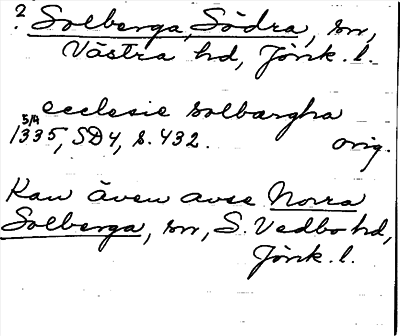 ? Solberga, Södra, sn,
Västra hd, Jönk. l.
ecclesie solbargha
5/9
1335, SD4, s. 432. orig.
Kan även avse Norra
Solberga, sn, S. Vedbo hd,
Jönk. l.